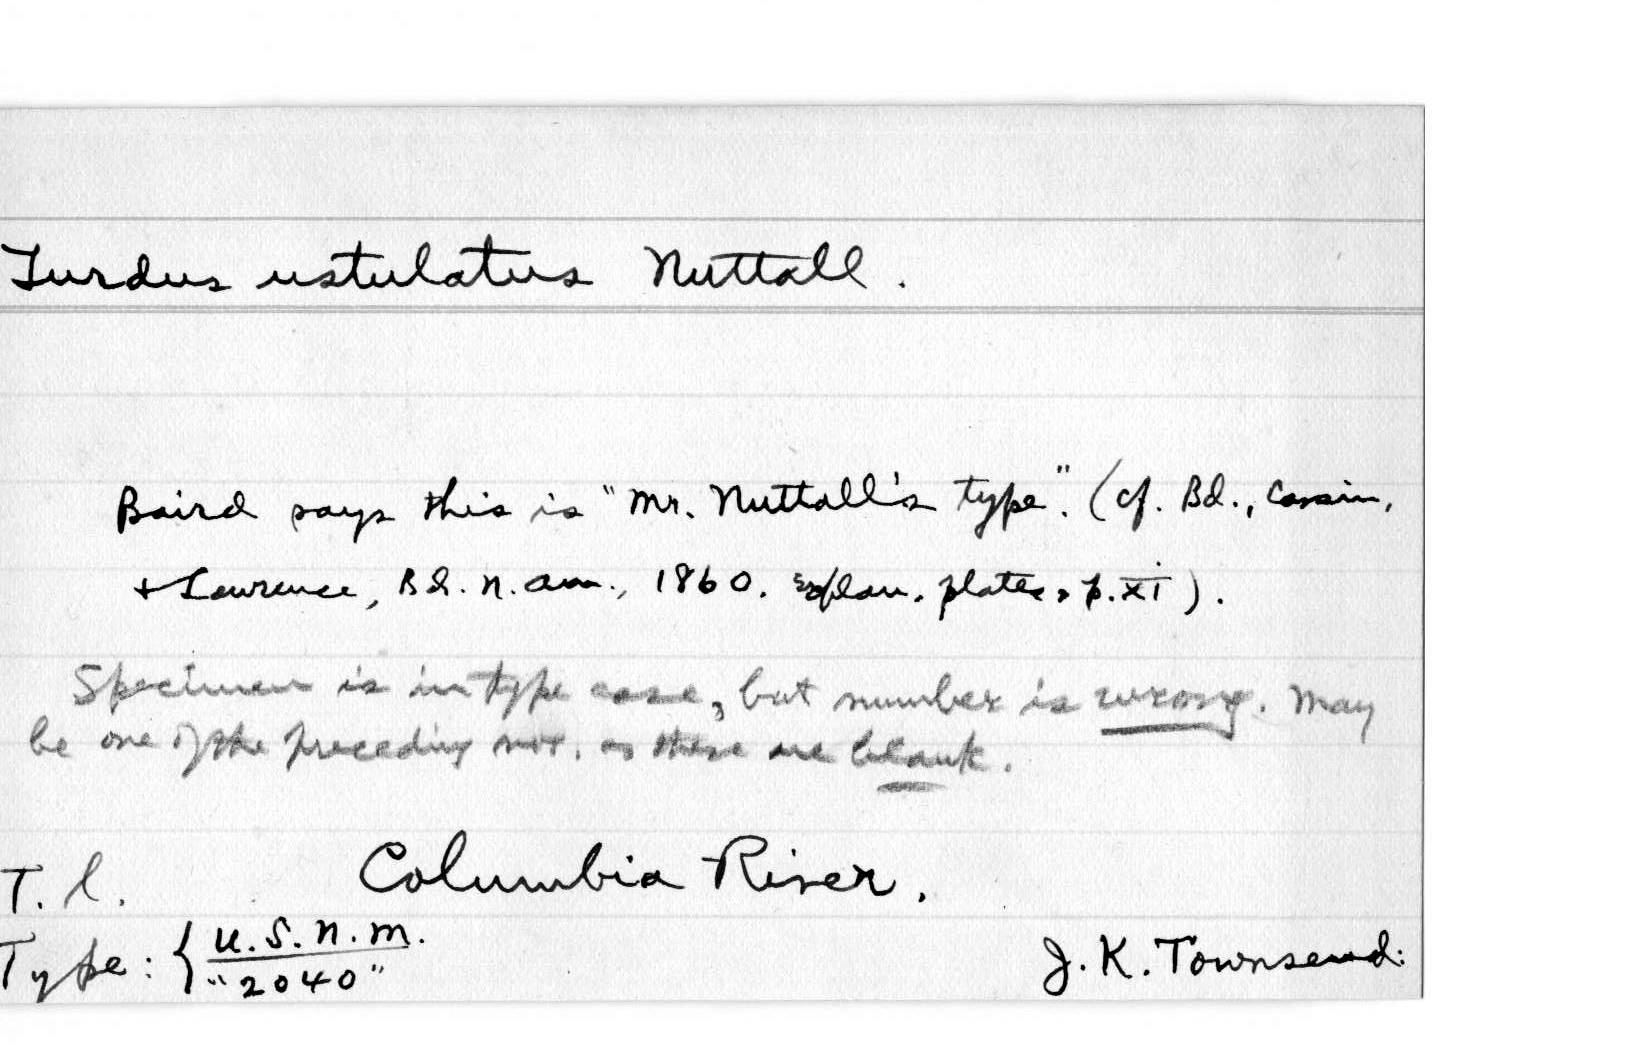 Turdus ustulatus Nuttall.
Baird says this is "Mr. Nuttall's type". (cf. Bd., Cassin,
+ Lawrence, Bd. N. Am., 1860. Explan. plates, p. XI).
Specimen is in type case, but number is wrong. May
be one of the preceding nos. as these are blank.
T. l. Columbia River.
Type: { U.S.N.M.
"2040" J. K. Townsend: